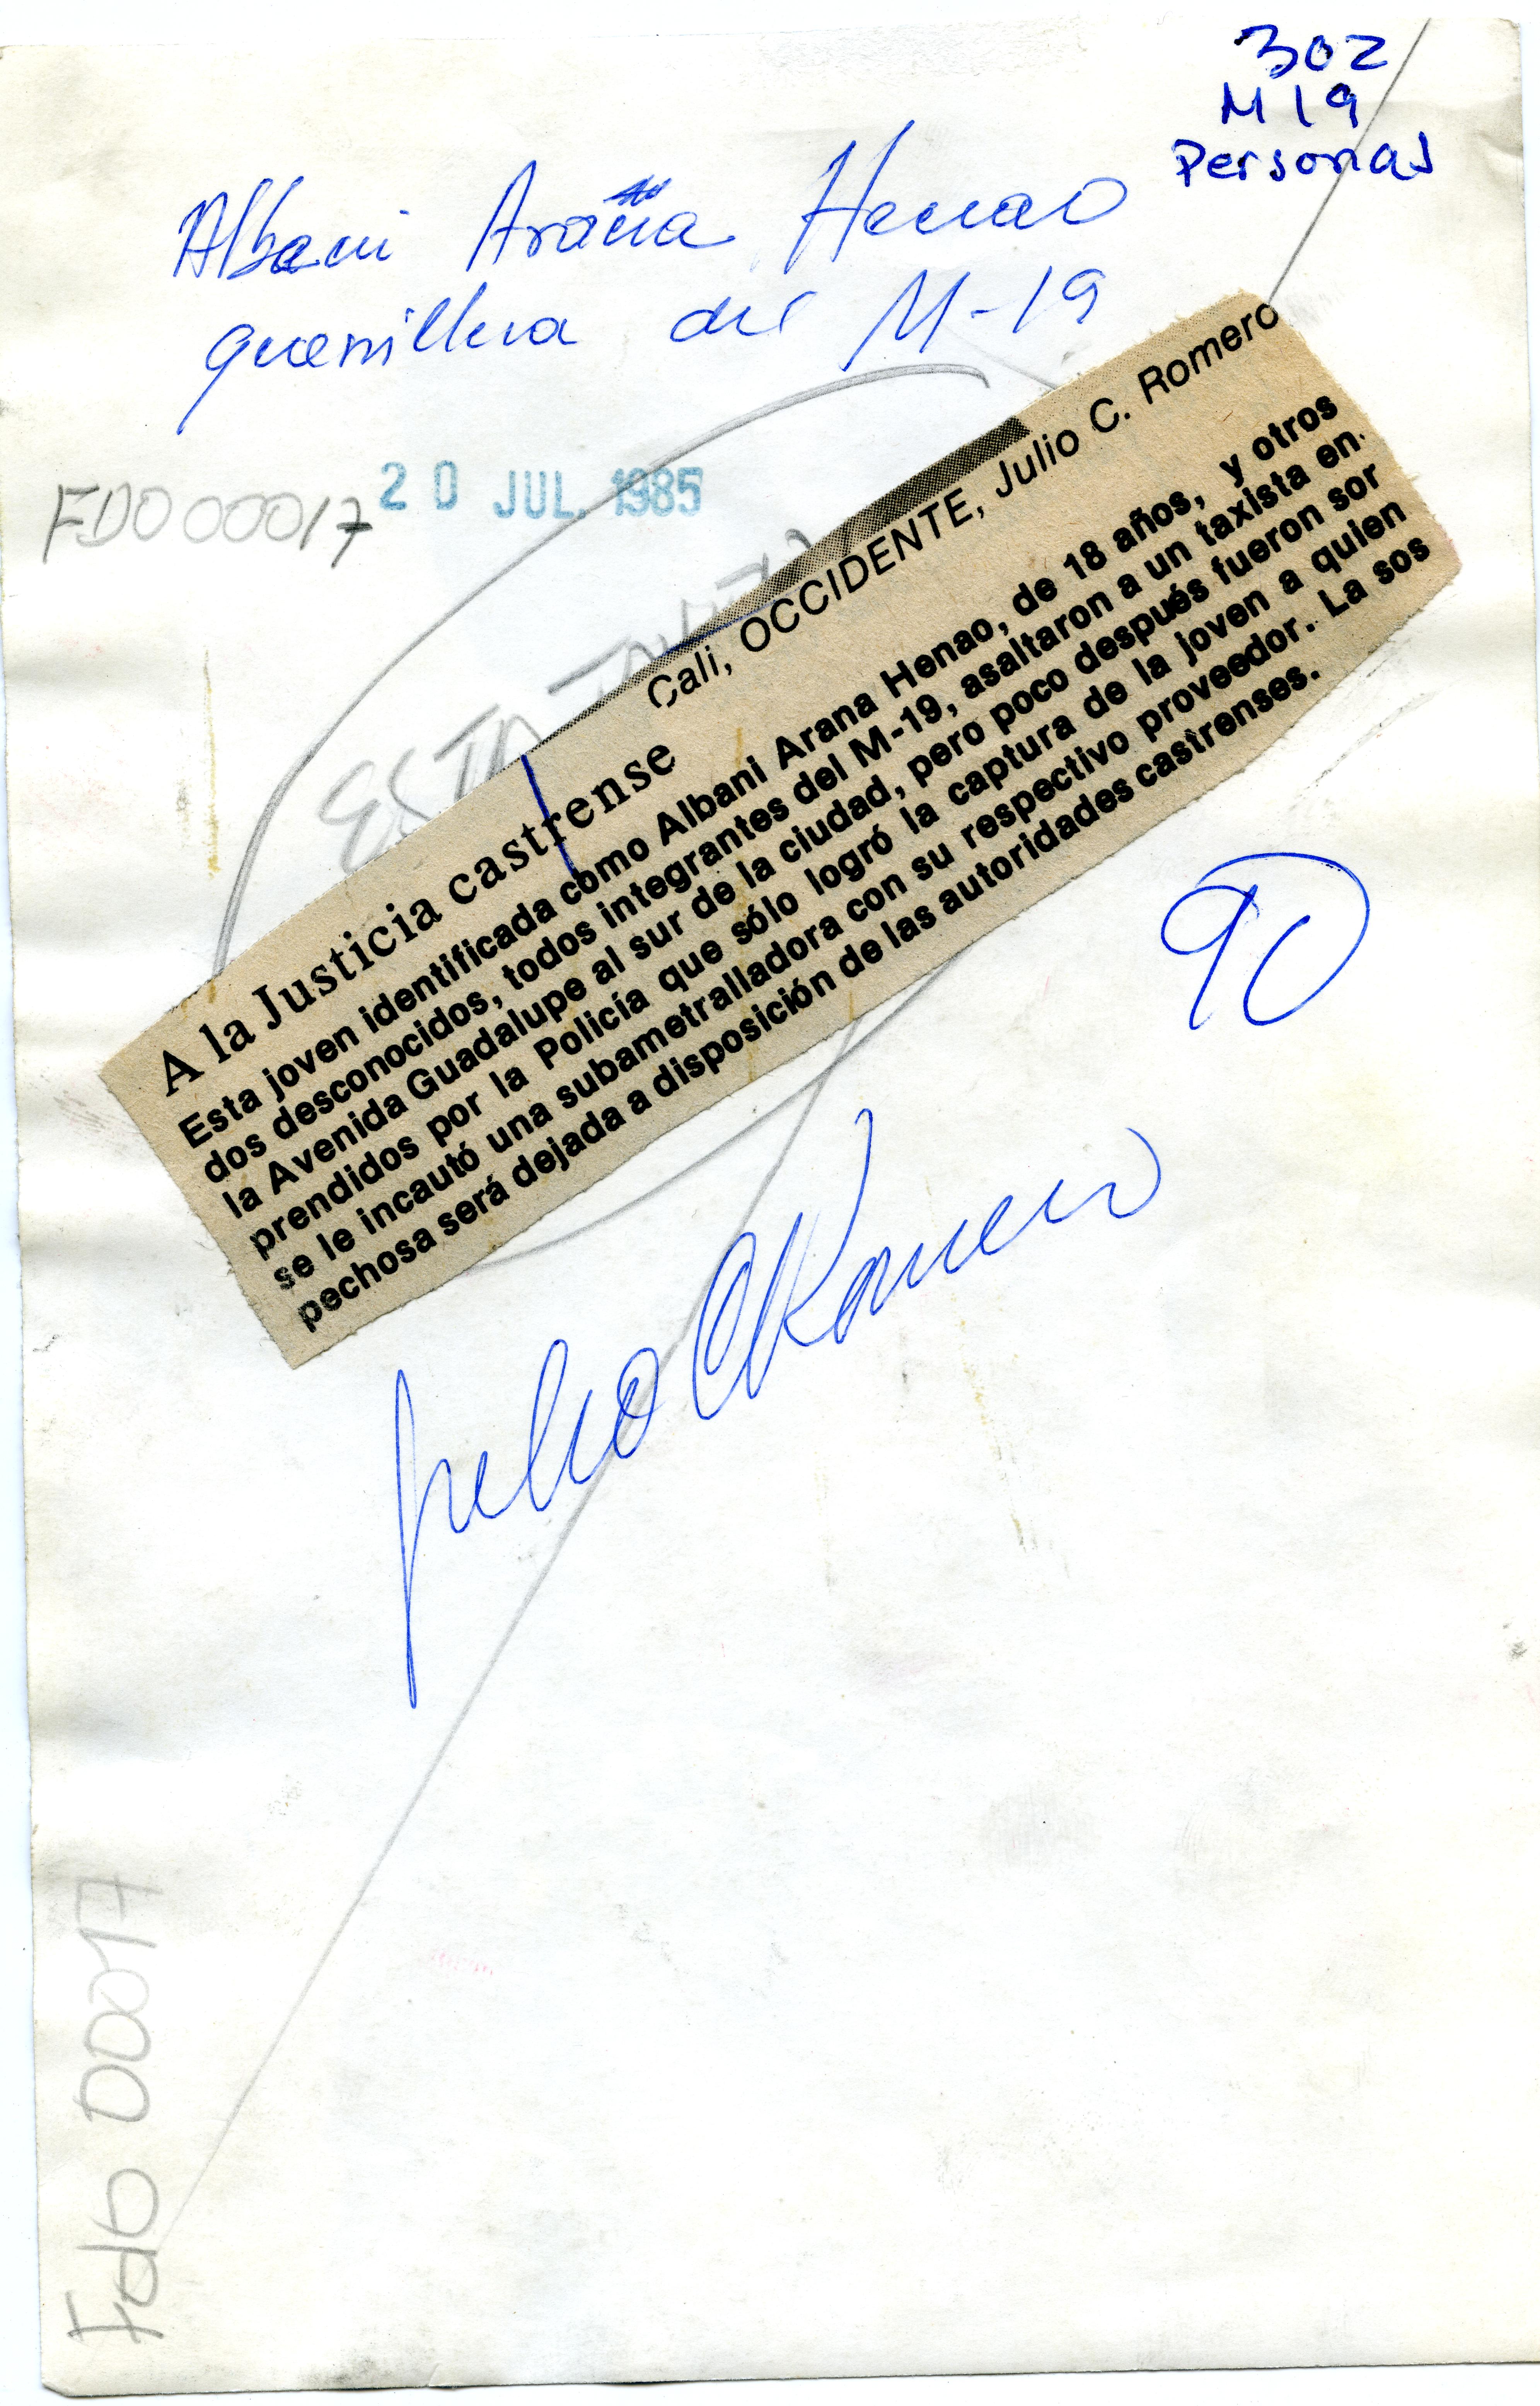 302
M19
Personas
Albani Araña Henao
guerrillera del M-19
FDO00017
20 JUL. 1985
ESTA
Cali, OCCIDENTE, Julio C. Romero
A la Justicia castrense
Esta joven identificada como Albani Arana Henao, de 18 años, y otros
dos desconocidos, todos integrantes del M-19, asaltaron a un taxista en
la Avenida Guadalupe al sur de la ciudad, pero poco después fueron sor
prendidos por la Policía que sólo logró la captura de la joven a quien
se le incautó una subametralladora con su respectivo proveedor. La sos
pechosa será dejada a disposición de las autoridades castrenses.
90
Julio C Romero
Fdb 00017